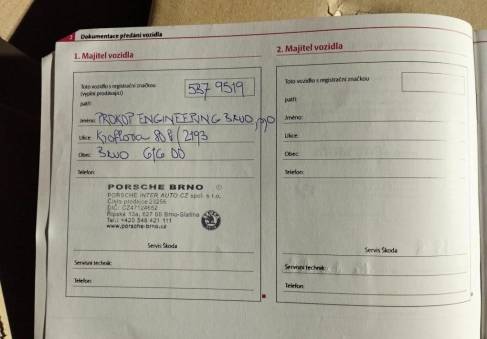 Dokumentace předání vozidla
1. Majitel vozidla
Toto vozidlo s registrační značkou
(vyplní prodávající)
5B7 9519
patří:
Jméno: PROKOP ENGINEERING BRNO,
Ulice:
Obec: BRNO 616 00
Telefon:
PORSCHE BRNO
PORSCHE INTER AUTO CZ spol. s r.o.
Číslo prodejce 23256
DIČ: CZ47124652
Řípská 13a, 627 00 Brno-Slatina
Tel.: +420 548 421 111
www.porsche-brno.cz
Servis Škoda
Servisní technik:
Telefon:
2. Majitel vozidla
Toto vozidlo s registrační značkou
patří:
Jméno:
Ulice:
Obec:
Telefon:
Servis Škoda
Servisní technik:
Telefon: